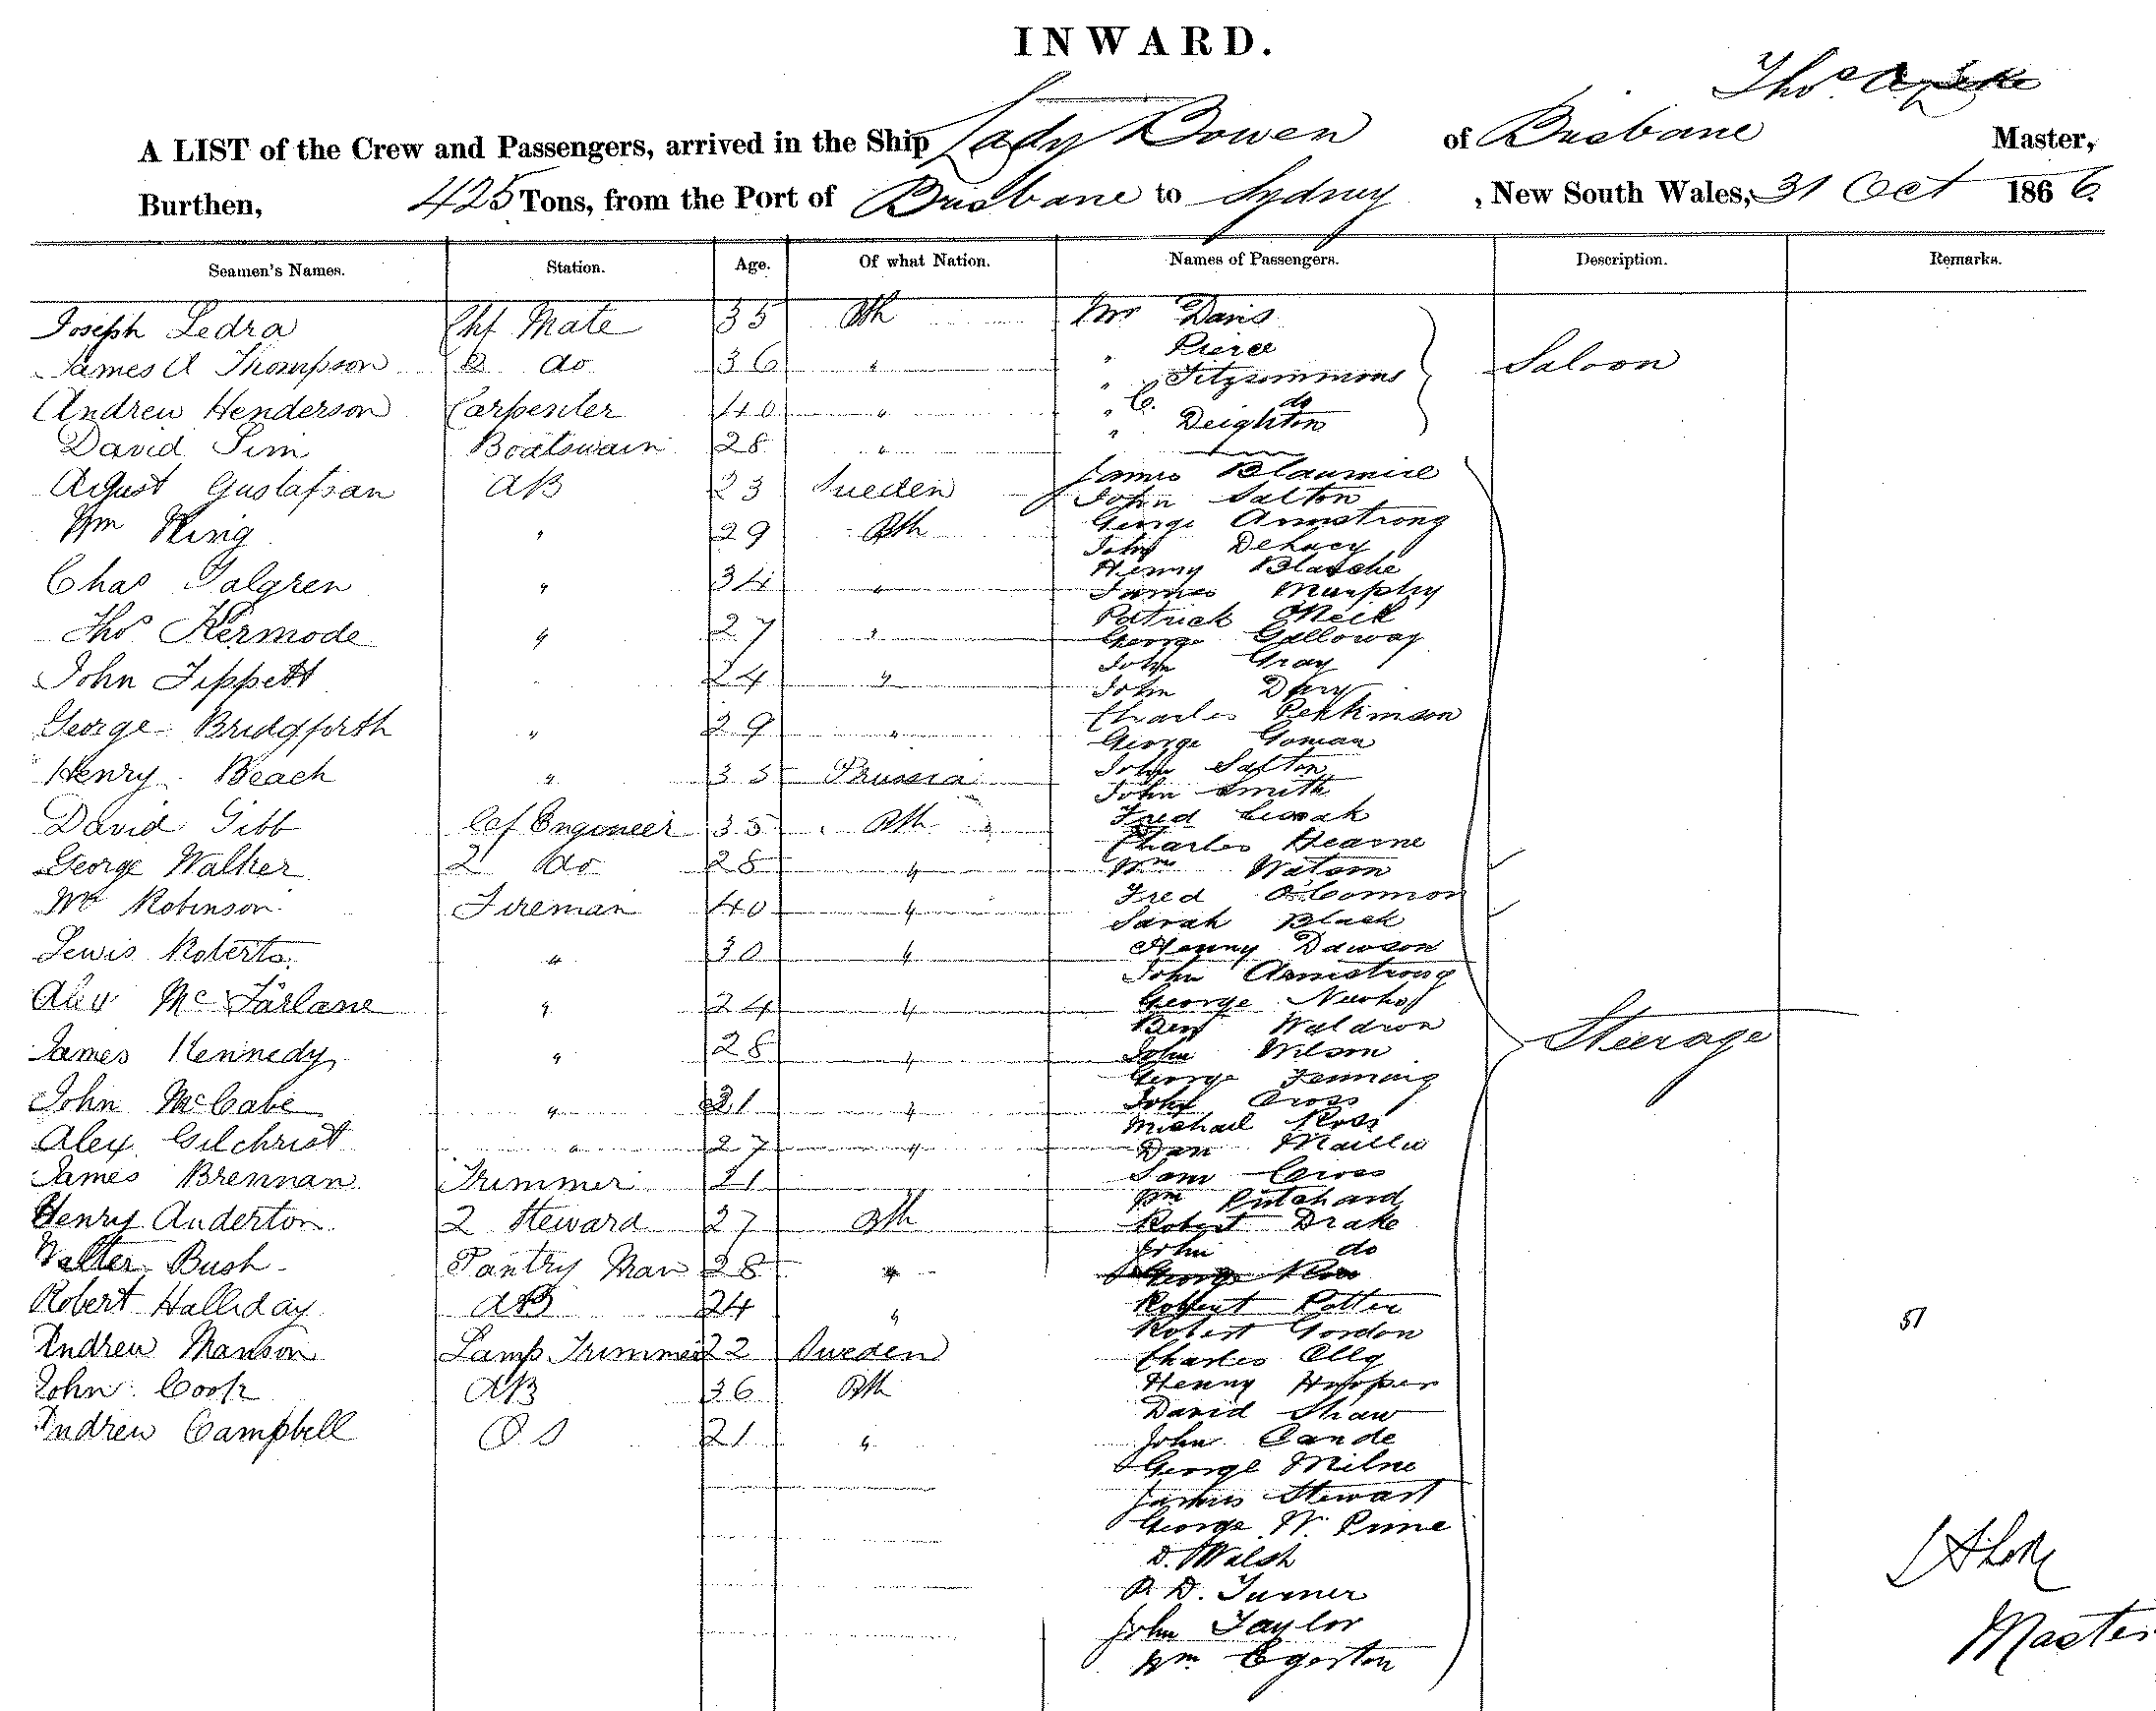 INWARD.
Thos
A LIST of the Crew and Passengers, arrived in the Ship Lady Bowen of Brisbane Master,
Burthen, 425 Tons, from the Port of Brisbane to Sydney , New South Wales, 31 Oct 1866.
Seamen's Names. Station. Age. Of what Nation. Names of Passengers. Description. Remarks.
Joseph Ledra Chf Mate 35 Bth
James A Thompson 2 do 36 "
Andrew Henderson Carpenter 40 "
David Sim Boatswain 28 "
August Gustafsan AB 23 Sweden
Wm King " 29 Bth
Chas Galgren " 34 "
Thos Kermode " 27 "
John Tippett " 24 "
George Bridgforth " 29 "
Henry Beach " 35 Prussia
David Gibb Cf Engineer 35 Bth
George Walker 2 do 28 "
Wm Robinson Fireman 40 "
Lewis Roberts " 30 "
Alex McFarlane " 24 "
James Kennedy " 28 "
John McCabe " 21 "
Alex Gilchrist " 27 "
James Brennan Trimmer 21
Henry Anderton 2 Steward 27 Bth
Walter Bush Pantry Man 28 "
Robert Halliday AB 24 "
Andrew Manson Lamp Trimmer 22 Sweden
John Cook AB 36 Bth
Andrew Campbell OS 21 "
Mr Davis
" Pierce
" Fitzsimmons
" C. do
" Deighton
Saloon
James Blaumire
John Salton
George Armstrong
John Delacy
Henry Blasche
James Murphy
Patrick ONeil
George Galloway
John Gray
John
Charles Perkinson
George Goman
John Salton
John Smith
Fred
Charles Hearne
Wm Watson
Fred O'Connor
Sarah Black
Henry Dawson
John Armstrong
George
Ben Waldron
John Wilson
George Fenning
John Cross
Michael Ross
Dan
Sam
Wm Pritchard
Robert Drake
John do
George Ross
Robert Potter
Robert Gordon
Charles
Henry Hooper
David Shaw
John Cande
George Milne
James Stewart
George W. Prime
D. Walsh
P. D. Turner
John Taylor
Wm Egerton
Steerage
51
Master